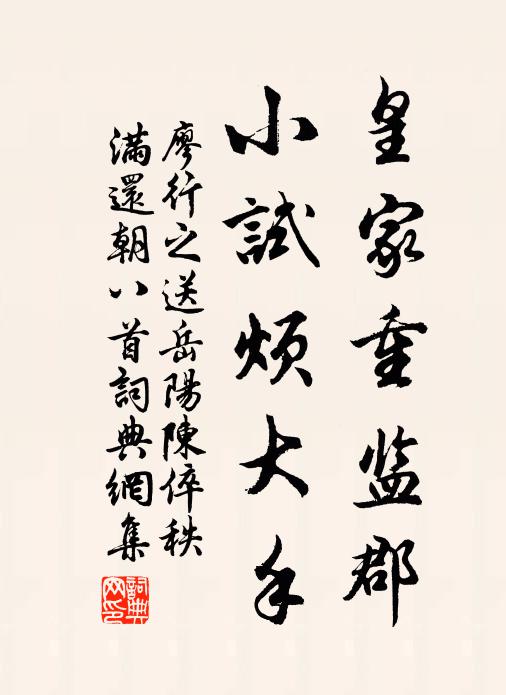 皇家重监郡
小試烦大手
廖行之送岳陽陳倅秩
滿還朝八首詞典網集
詞典网印